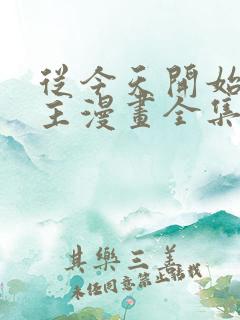 從今天開始
王漫畫全集
其樂三善
未任同意禁止轉載